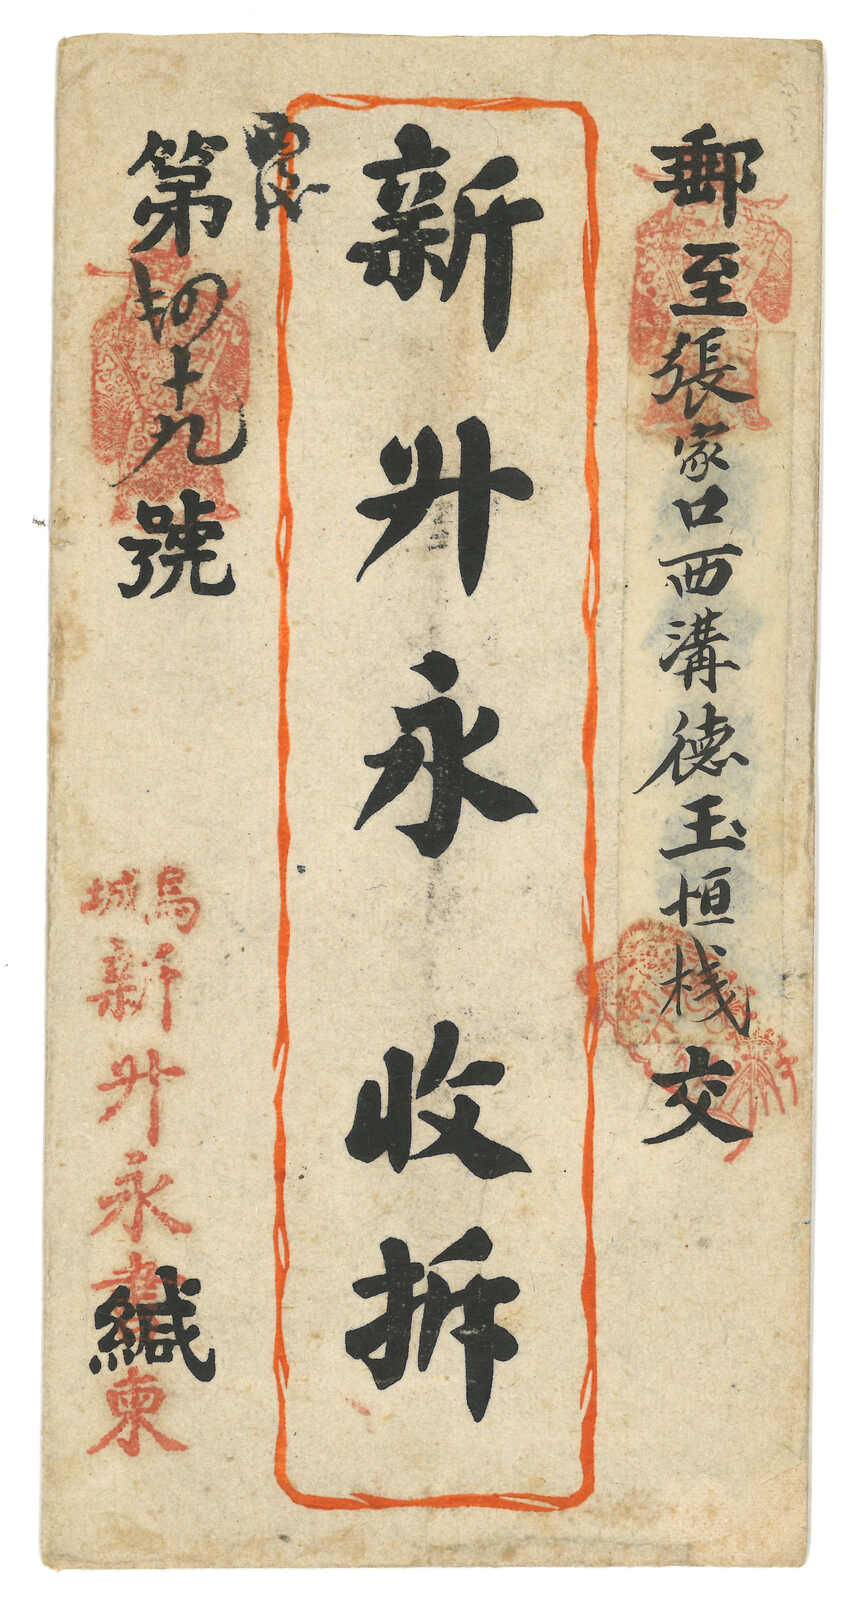 郵至張家口西溝德玉恒栈交
新升永 收拆
第四十九號
烏城
新升永書柬
緘